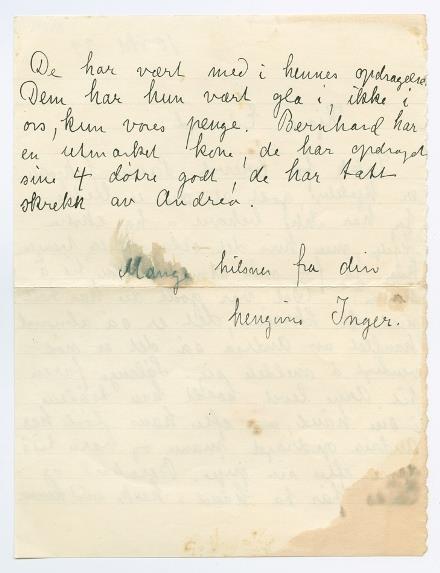 De har vært med i hennes opdragelse.
Dem har hun vært gla i, ikke i
os, kun vores penge. Bernhard har
en utmærket kone, de har opdraget
sine 4 døtre godt, de har tatt
skrekk av Andrea.
Mange hilsner fra din
hengivne Inger.